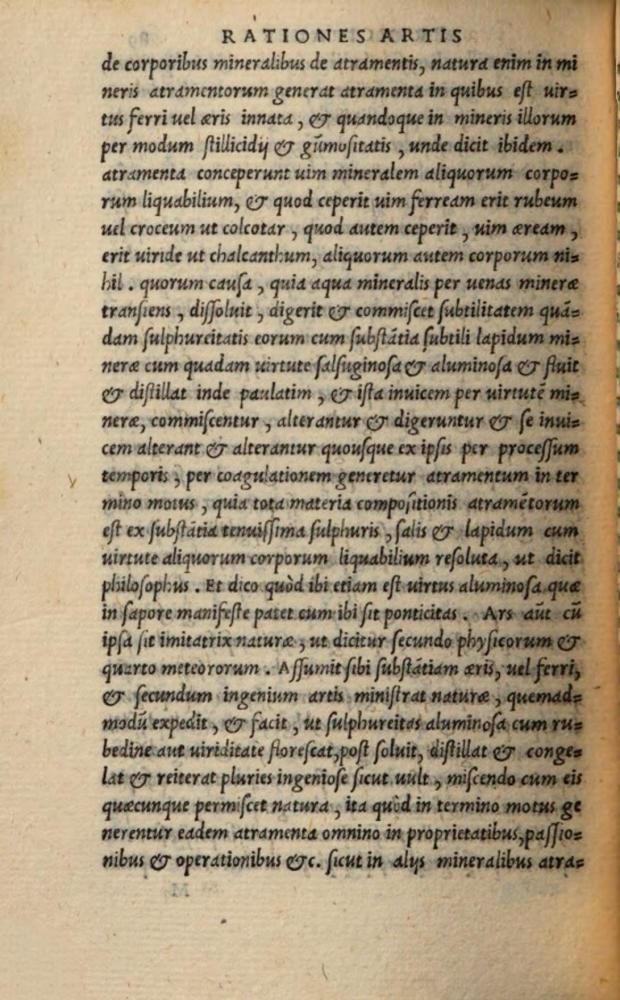 RATIONES ARTIS
de corporibus mineralibus de atramentis, natura enim in mi
neris atramentorum generat atramenta in quibus est uir=
tus ferri uel æris innata, & quandoque in mineris illorum
per modum stillicidij & gūmositatis, unde dicit ibidem.
atramenta conceperunt uim mineralem aliquorum corpo=
rum liquabilium, & quod ceperit uim ferream erit rubeum
uel croceum ut colcotar, quod autem ceperit, uim æream,
erit uiride ut chalcanthum, aliquorum autem corporum ni=
hil. quorum causa, quia aqua mineralis per uenas mineræ
transiens, dissoluit, digerit & commiscet subtilitatem quā=
dam sulphureitatis eorum cum substātia subtili lapidum mi=
neræ cum quadam uirtute salsuginosa & aluminosa & fluit
& distillat inde paulatim, & ista inuicem per uirtutē mi=
neræ, commiscentur, alterantur & digeruntur & se inui=
cem alterant & alterantur quousque ex ipsis per processum
temporis, per coagulationem generetur atramentum in ter
mino motus, quia tota materia compositionis atramētorum
est ex substātia tenuissima sulphuris, salis & lapidum cum
uirtute aliquorum corporum liquabilium resoluta, ut dicit
philosophus. Et dico quòd ibi etiam est uirtus aluminosa quæ
in sapore manifeste patet cum ibi sit ponticitas. Ars aūt cū
ipsa sit imitatrix naturæ, ut dicitur secundo physicorum &
quarto meteororum. Assumit sibi substātiam æris, uel ferri,
& secundum ingenium artis ministrat naturæ, quemad=
modū expedit, & facit, ut sulphureitas aluminosa cum ru=
bedine aut uiriditate florescat, post soluit, distillat & conge=
lat & reiterat pluries ingeniose sicut uult, miscendo cum eis
quæcunque permiscet natura, ita quòd in termino motus ge
nerentur eadem atramenta omnino in proprietatibus, passio=
nibus & operationibus &c. sicut in alijs mineralibus atra=